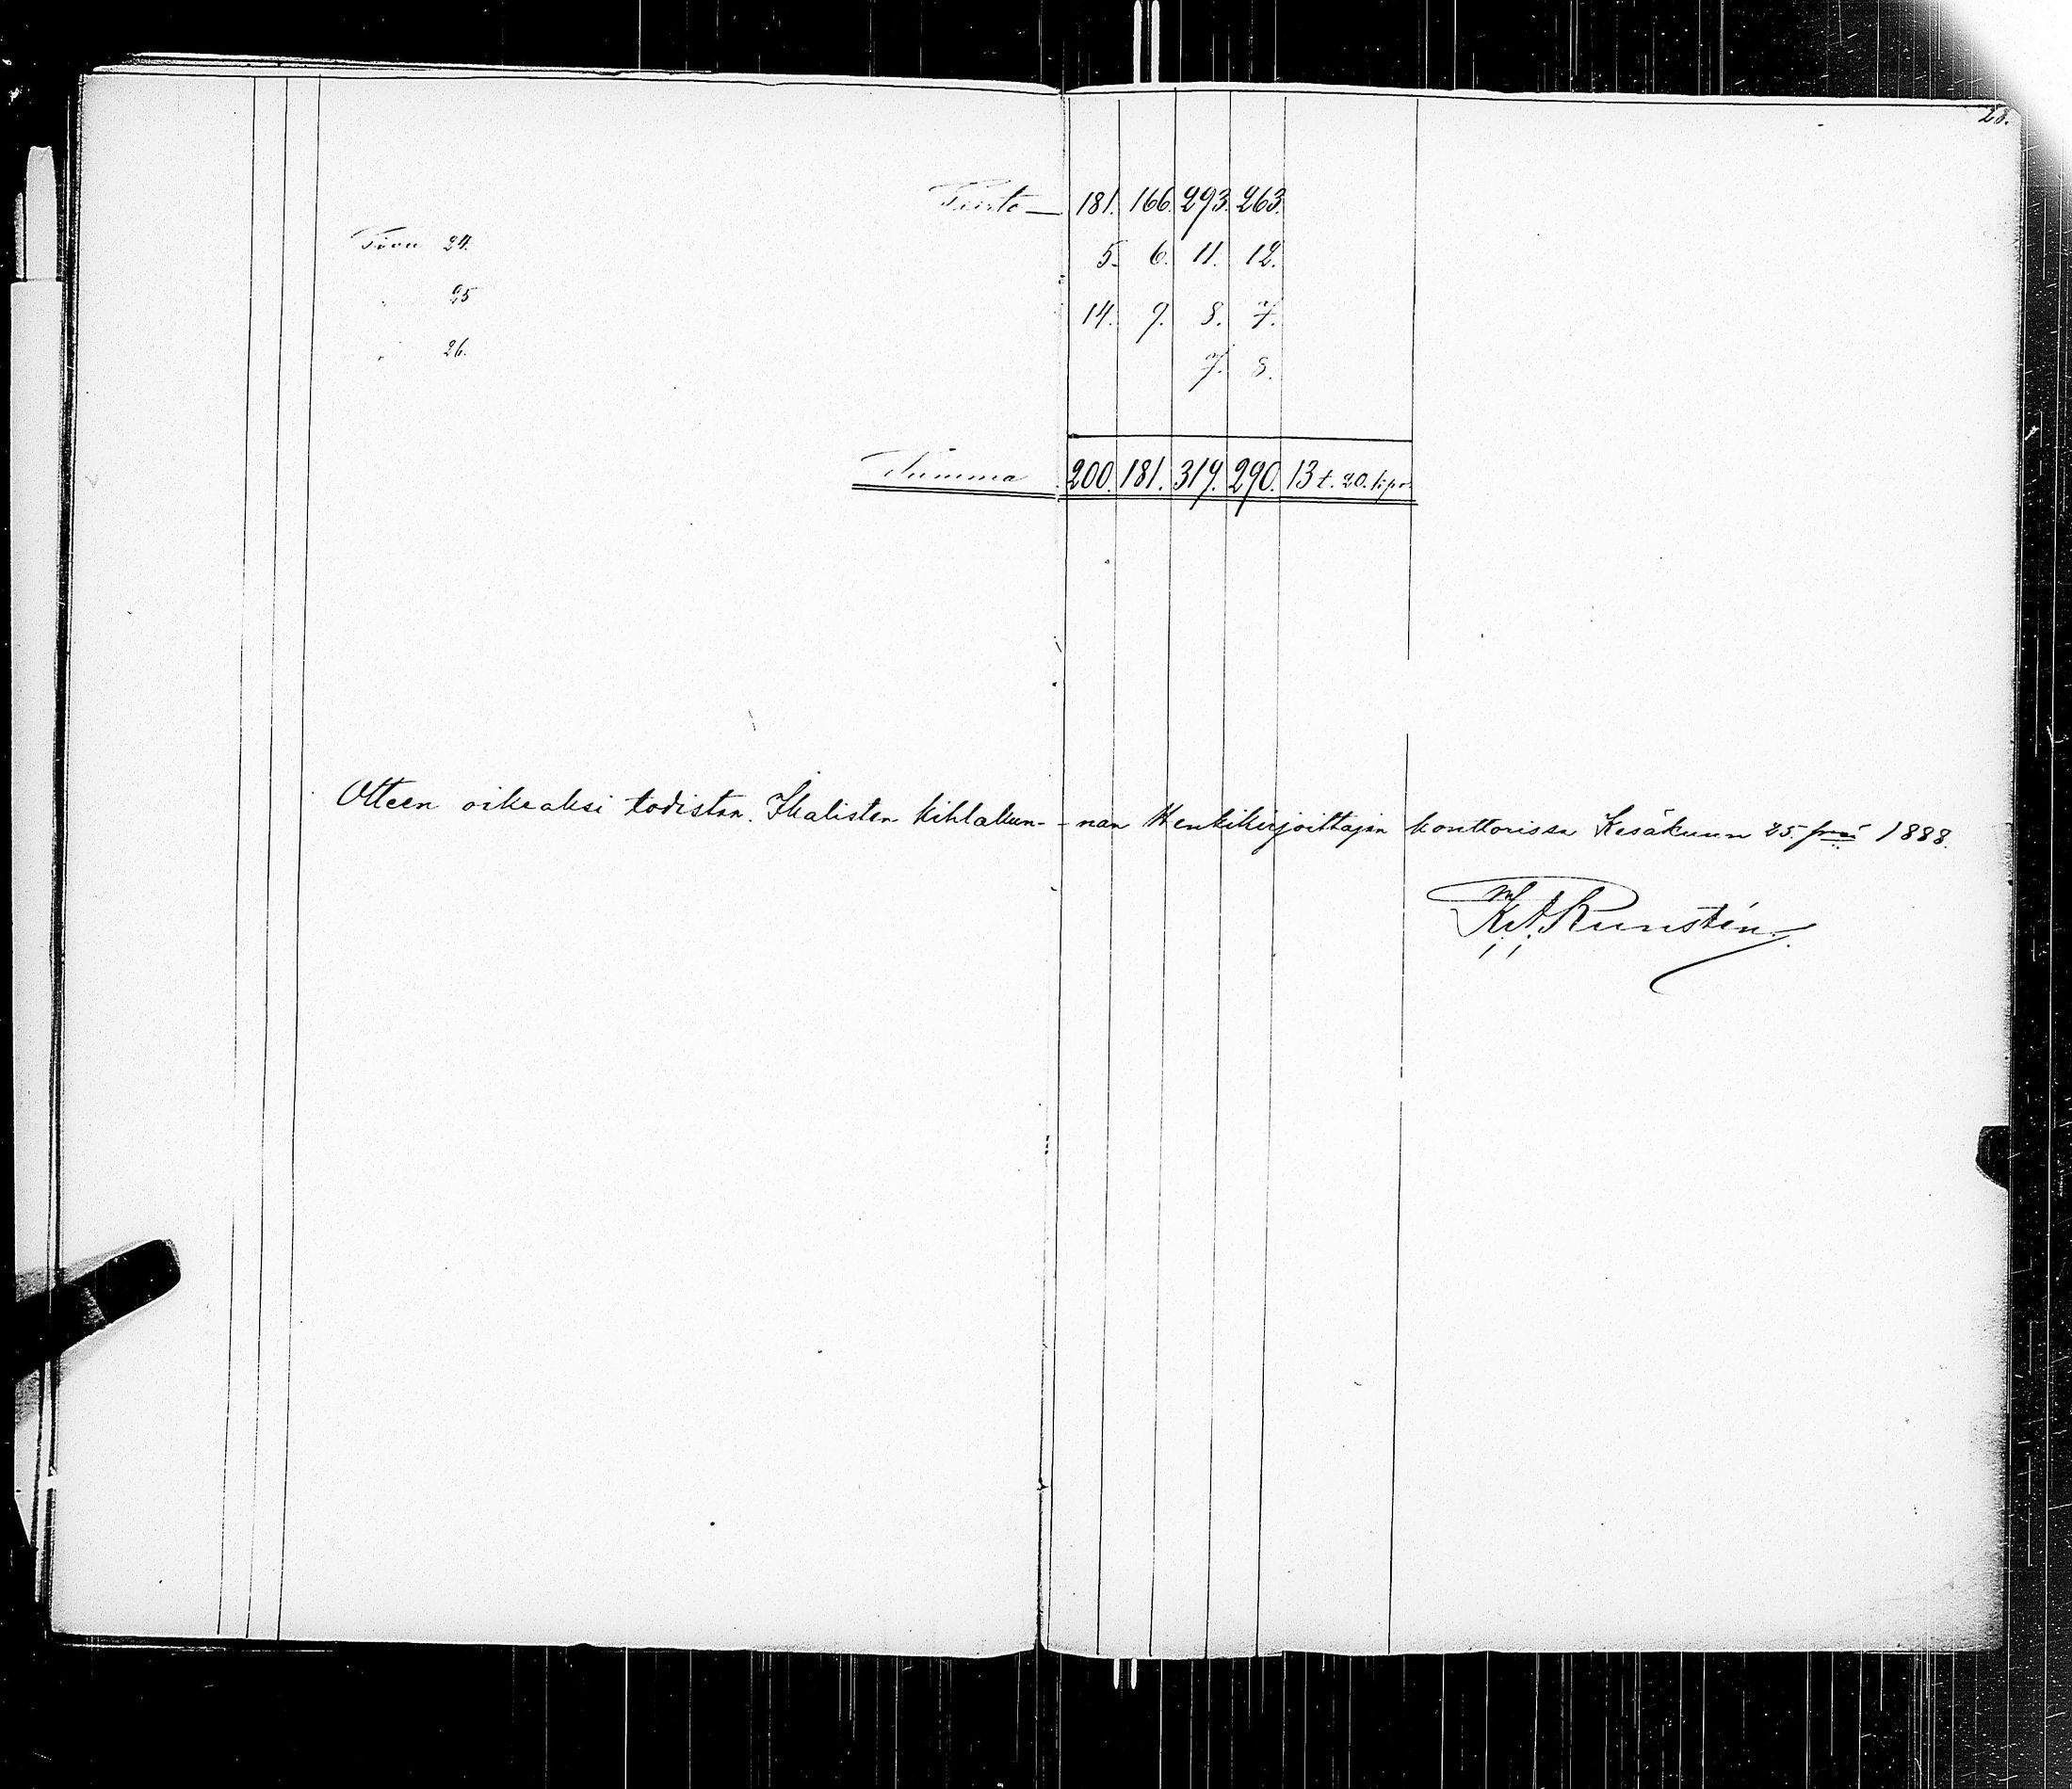 28.
Siirto — 181. 166. 293. 263.
Sivu 24. 5. 6. 11. 12.
" 25 14. 9. 8. 7.
" 26. 7. 8.
Summa 200. 181. 319. 290. 13 t. 20. kpr.
Otteen oikeaksi todistan. Ikalisten kihlakun- nan Henkikirjoittajan konttorissa Kesäkuun 25. pnä 1888.
K.A. Runstén.